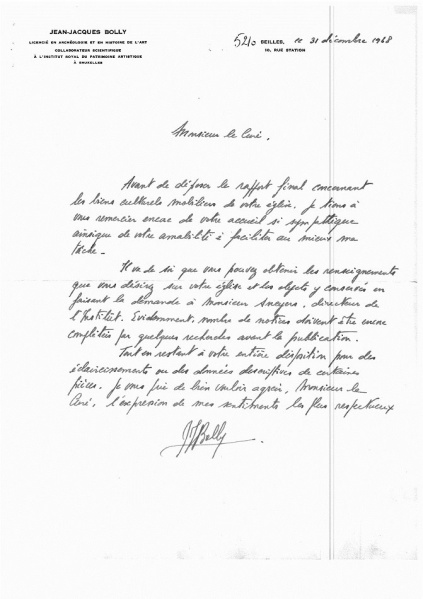 JEAN-JACQUES BOLLY
LICENCIÉ EN ARCHÉOLOGIE ET EN HISTOIRE DE L'ART
COLLABORATEUR SCIENTIFIQUE
À L'INSTITUT ROYAL DU PATRIMOINE ARTISTIQUE
À BRUXELLES
BEILLES, le 31 décembre 1968
10, RUE STATION
Monsieur le Curé,
Avant de déposer le rapport final concernant
les biens culturels mobiliers de votre église, je tiens à
vous remercier encore de votre accueil si sympathique
ainsi que de votre amabilité à faciliter au mieux ma
tâche.
Il va de soi que vous pouvez obtenir les renseignements
que vous désirez sur votre église et les objets y conservés en
faisant la demande à Monsieur Sneyers, directeur de
l'Institut. Evidemment, nombre de notices doivent être encore
complétées par quelques recherches avant la publication.
Tout en restant à votre entière disposition pour des
éclaircissements ou des données descriptives de certaines
pièces, je vous prie de bien vouloir agréer, Monsieur le
Curé, l'expression de mes sentiments les plus respectueux
JJBolly